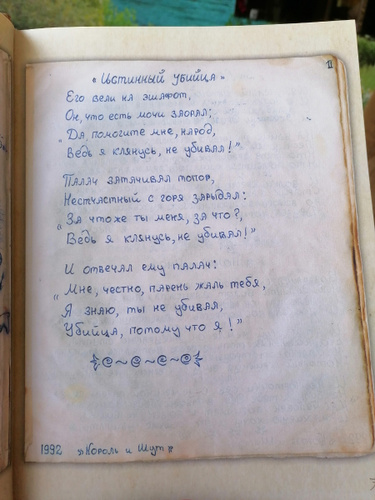 11
« Истинный убийца »
Его вели на эшафот,
Он, что есть мочи заорал;
„ Да помогите мне, народ,
Ведь я клянусь, не убивал!"
Палач затачивал топор,
Несчастный с горя зарыдал:
„ За что же ты меня, за что?,
Ведь я клянусь, не убивал!"
И отвечал ему палач:
„ Мне, честно, парень жаль тебя,
Я знаю, ты не убивал,
Убийца, потому что я!"
1992 »Король и Шут»